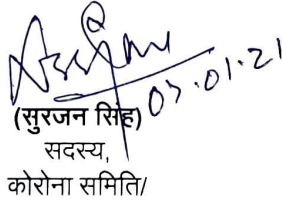 07.01.21
(सुरजन सिंह)
सदस्य,
कोरोना समिति/